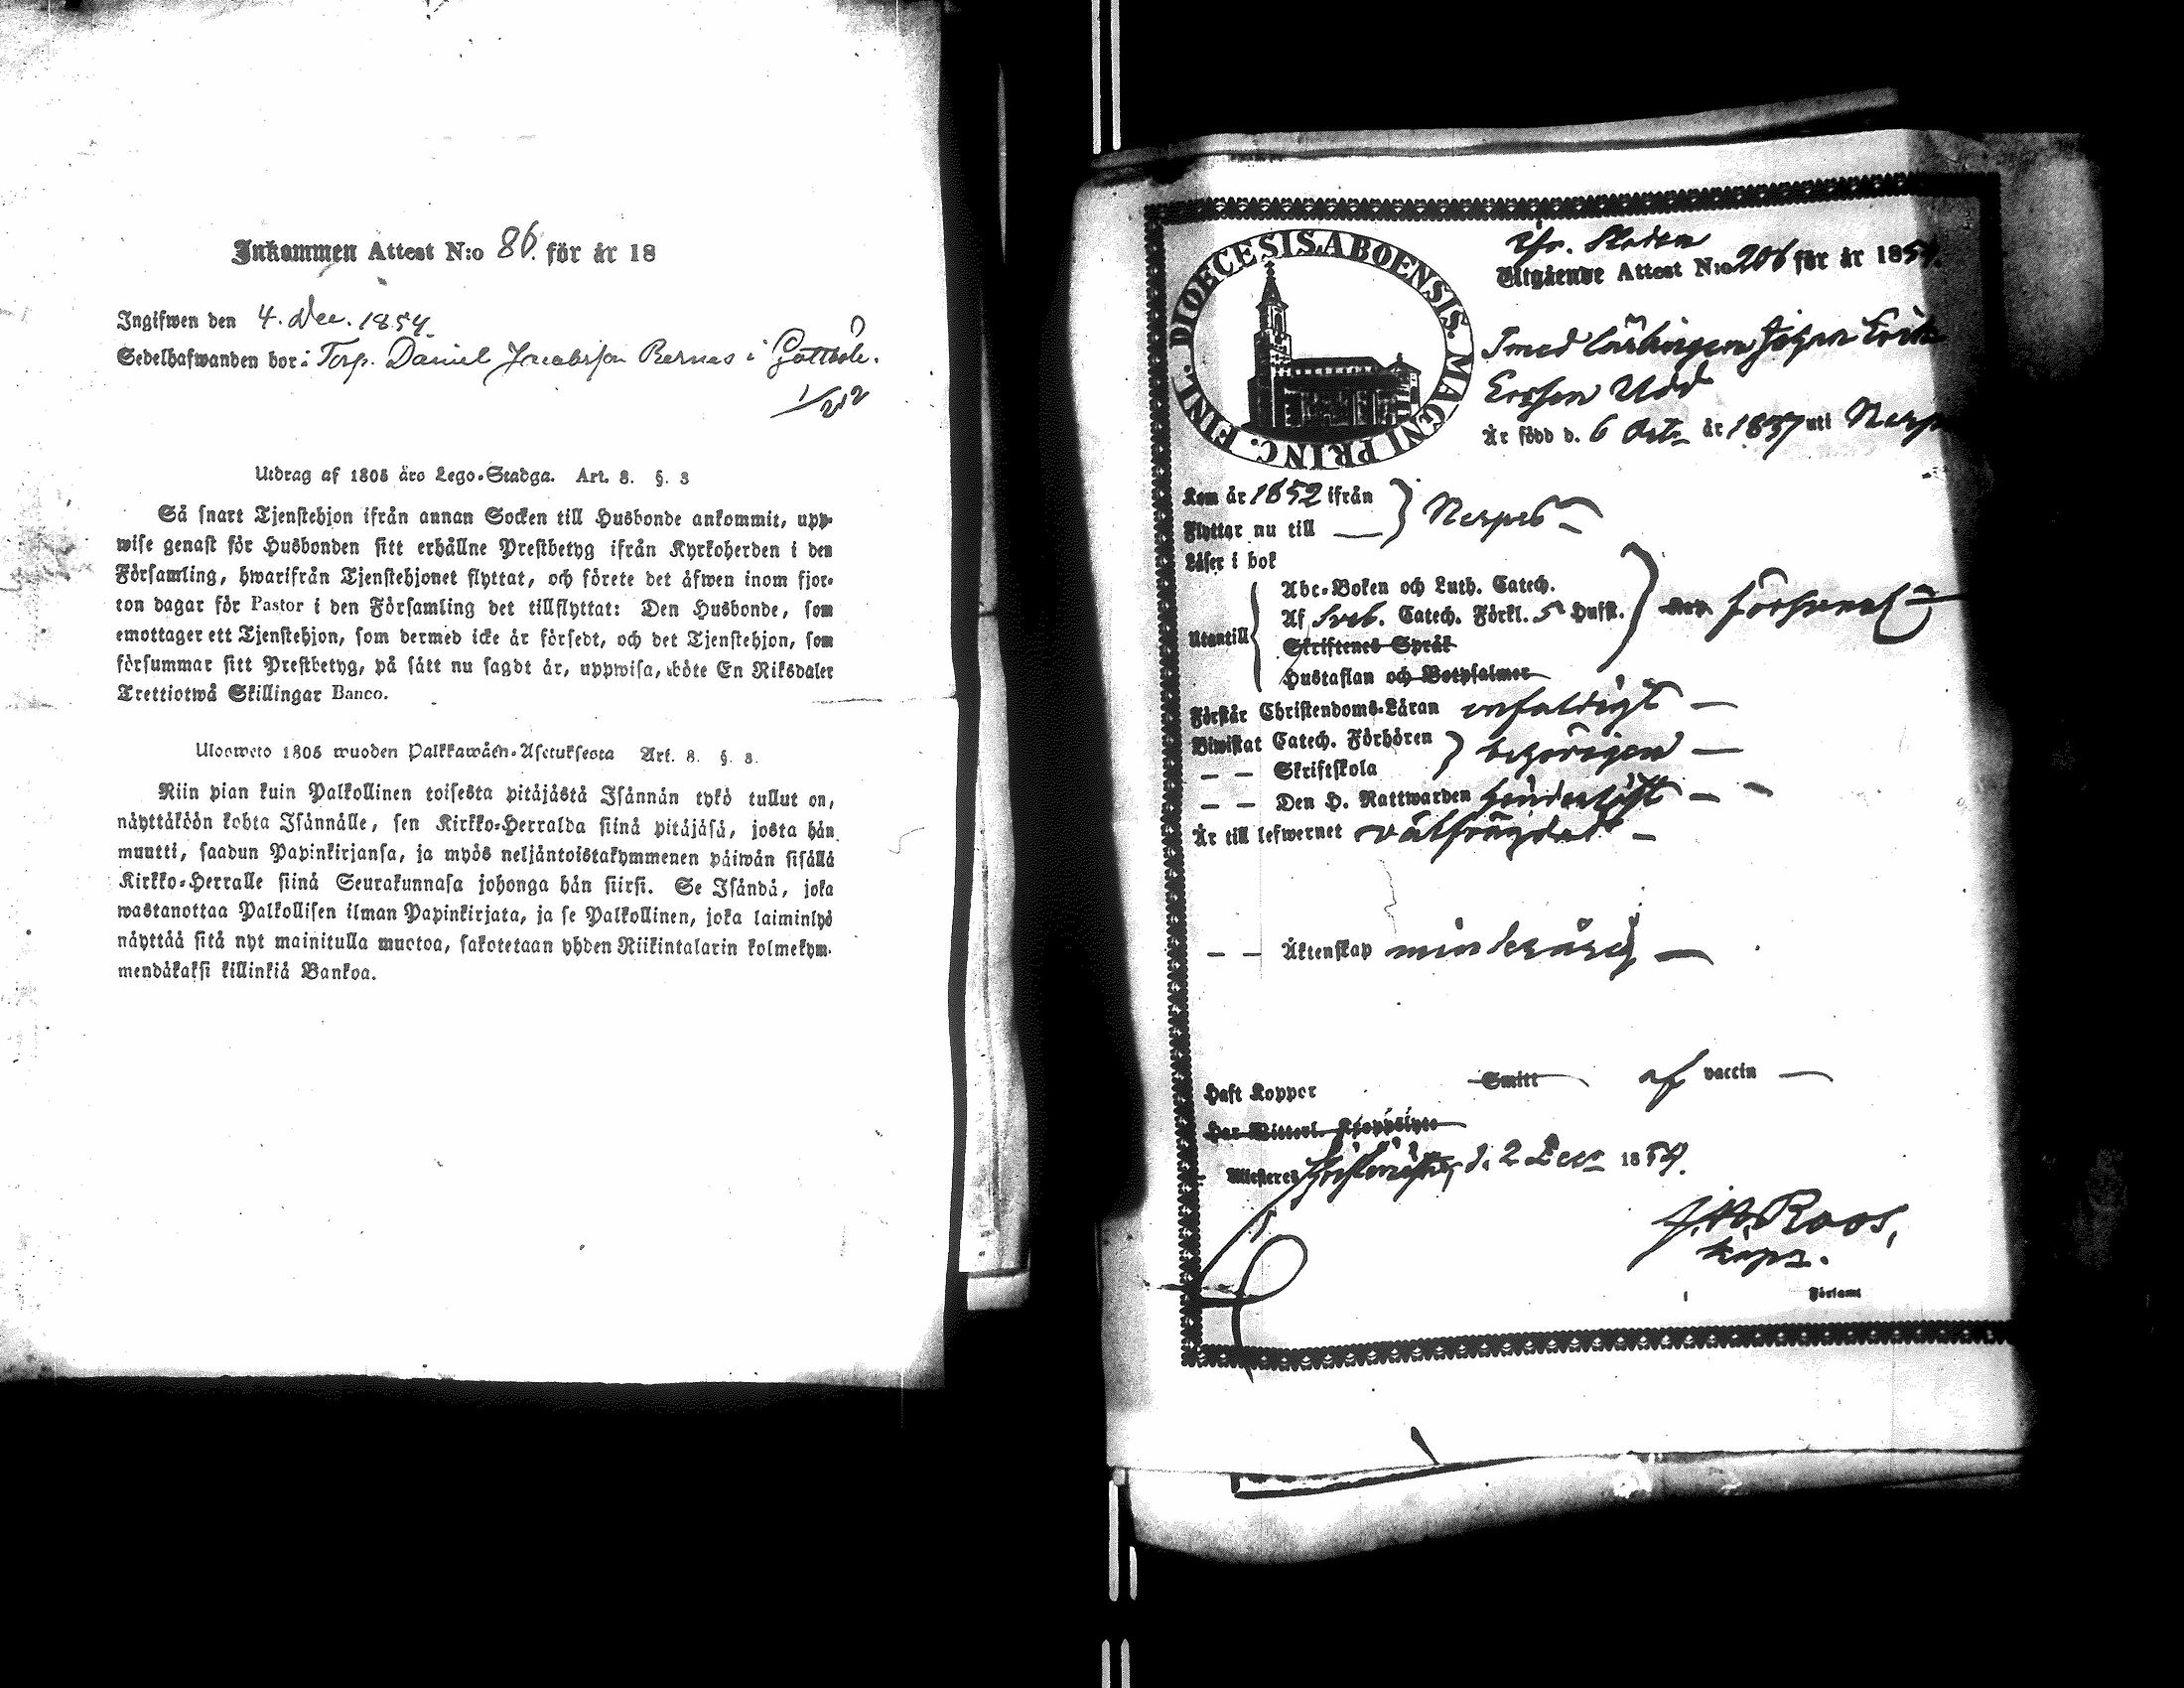 Inkommen Attest N:o 86. för år 18
Ingifwen den 4. Dec. 1854.
Sedelhafwanden bor: Torp. Daniel Jacobsson Rernas i Gottböle.
1/212
Utdrag af 1805 års Lego-Stadga. Art. 8. §. 3
Så snart Tjenstehjon ifrån annan Socken till Husbonde ankommit, upp-
wise genast för Husbonden sitt erhållne Prestbetyg ifrån Kyrkoherden i den
Församling, hwarifrån Tjenstehjonet flyttat, och förete det äfwen inom fjor-
ton dagar för Pastor i den Församling det tillflyttat: Den Husbonde, som
emottager ett Tjenstehjon, som dermed icke är försedt, och det Tjenstehjon, som
försummar sitt Prestbetyg, på sätt nu sagdt är, uppwisa, böte En Riksdaler
Trettiotwå Skillingar Banco.
Ulosweto 1805 wuoden Palkkawäen-Asetuksesta Art. 8. §. 3.
Niin pian kuin Palkollinen toisesta pitäjästä Isännän tykö tullut on,
näyttäköön kohta Isännälle, sen Kirkko-Herralda siinä pitäjäsä, josta hän
muutti, saadun Papinkirjansa, ja myös neljäntoistakymmenen päiwän sisällä
Kirkko-Herralle siinä Seurakunnasa johonga hän siirsi. Se Isändä, joka
wastanottaa Palkollisen ilman Papinkirjata, ja se Palkollinen, joka laiminlyö
näyttää sitä nyt mainitulla muotoa, sakotetaan yhden Riikintalarin kolmekym-
mendäkaksi killinkiä Bankoa.
DIOECESIS ABOENSIS. MAGNI PRINC. FINL.
Utgående Attest N:o 206 för år 1854.
Smed Lärlingen Johan Erik
Ersson Udd
Är född d. 6 Octr år 1837 uti Nerpes
Kom år 1852 ifrån } Nerpes
Flyttar nu till
Läser i bok
Abc-Boken och Luth. Catech.
Utantill Af Sveb. Catech. Förkl. 5 Hufst. förswarl.
Skriftenes Språk
Hustaflan och Botpsalmer
Förstår Christendoms-Läran enfaldigt
Biwistat Catech. Förhören } behörigen
— — Skriftskola
— — Den H. Nattwarden hinderlöst
Är till lefwernet välfrägdad
— — Äktenskap minderårig
Haft Koppor Smitt af vaccin
Har Witterl. Kroppslyte
Attesteres d. 2 Decr 1854.
Roos,
Församl